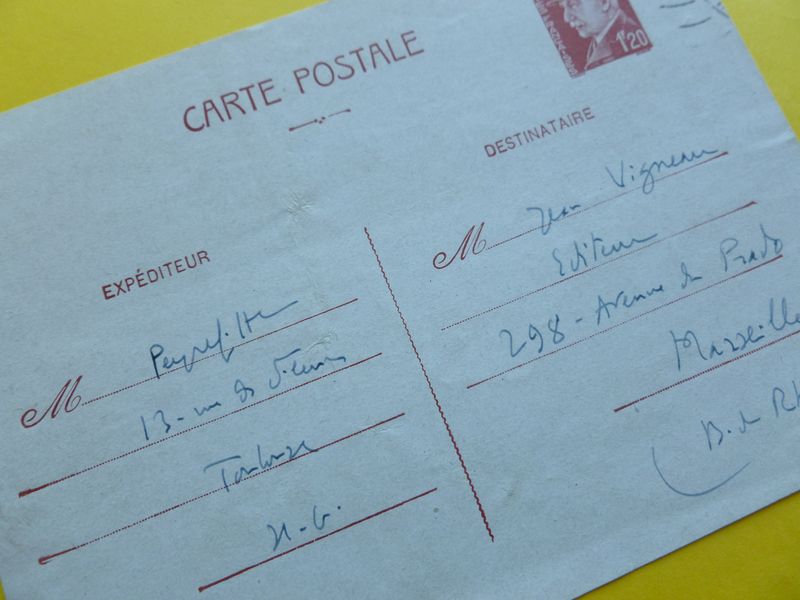 CARTE POSTALE
1F20
EXPÉDITEUR
M Peyrefitte
13 - rue des Fleurs
Toulouse
H.-G.
DESTINATAIRE
M Jean Vigneau
Editeur
298 - Avenue du Prado
Marseille
B. du Rh